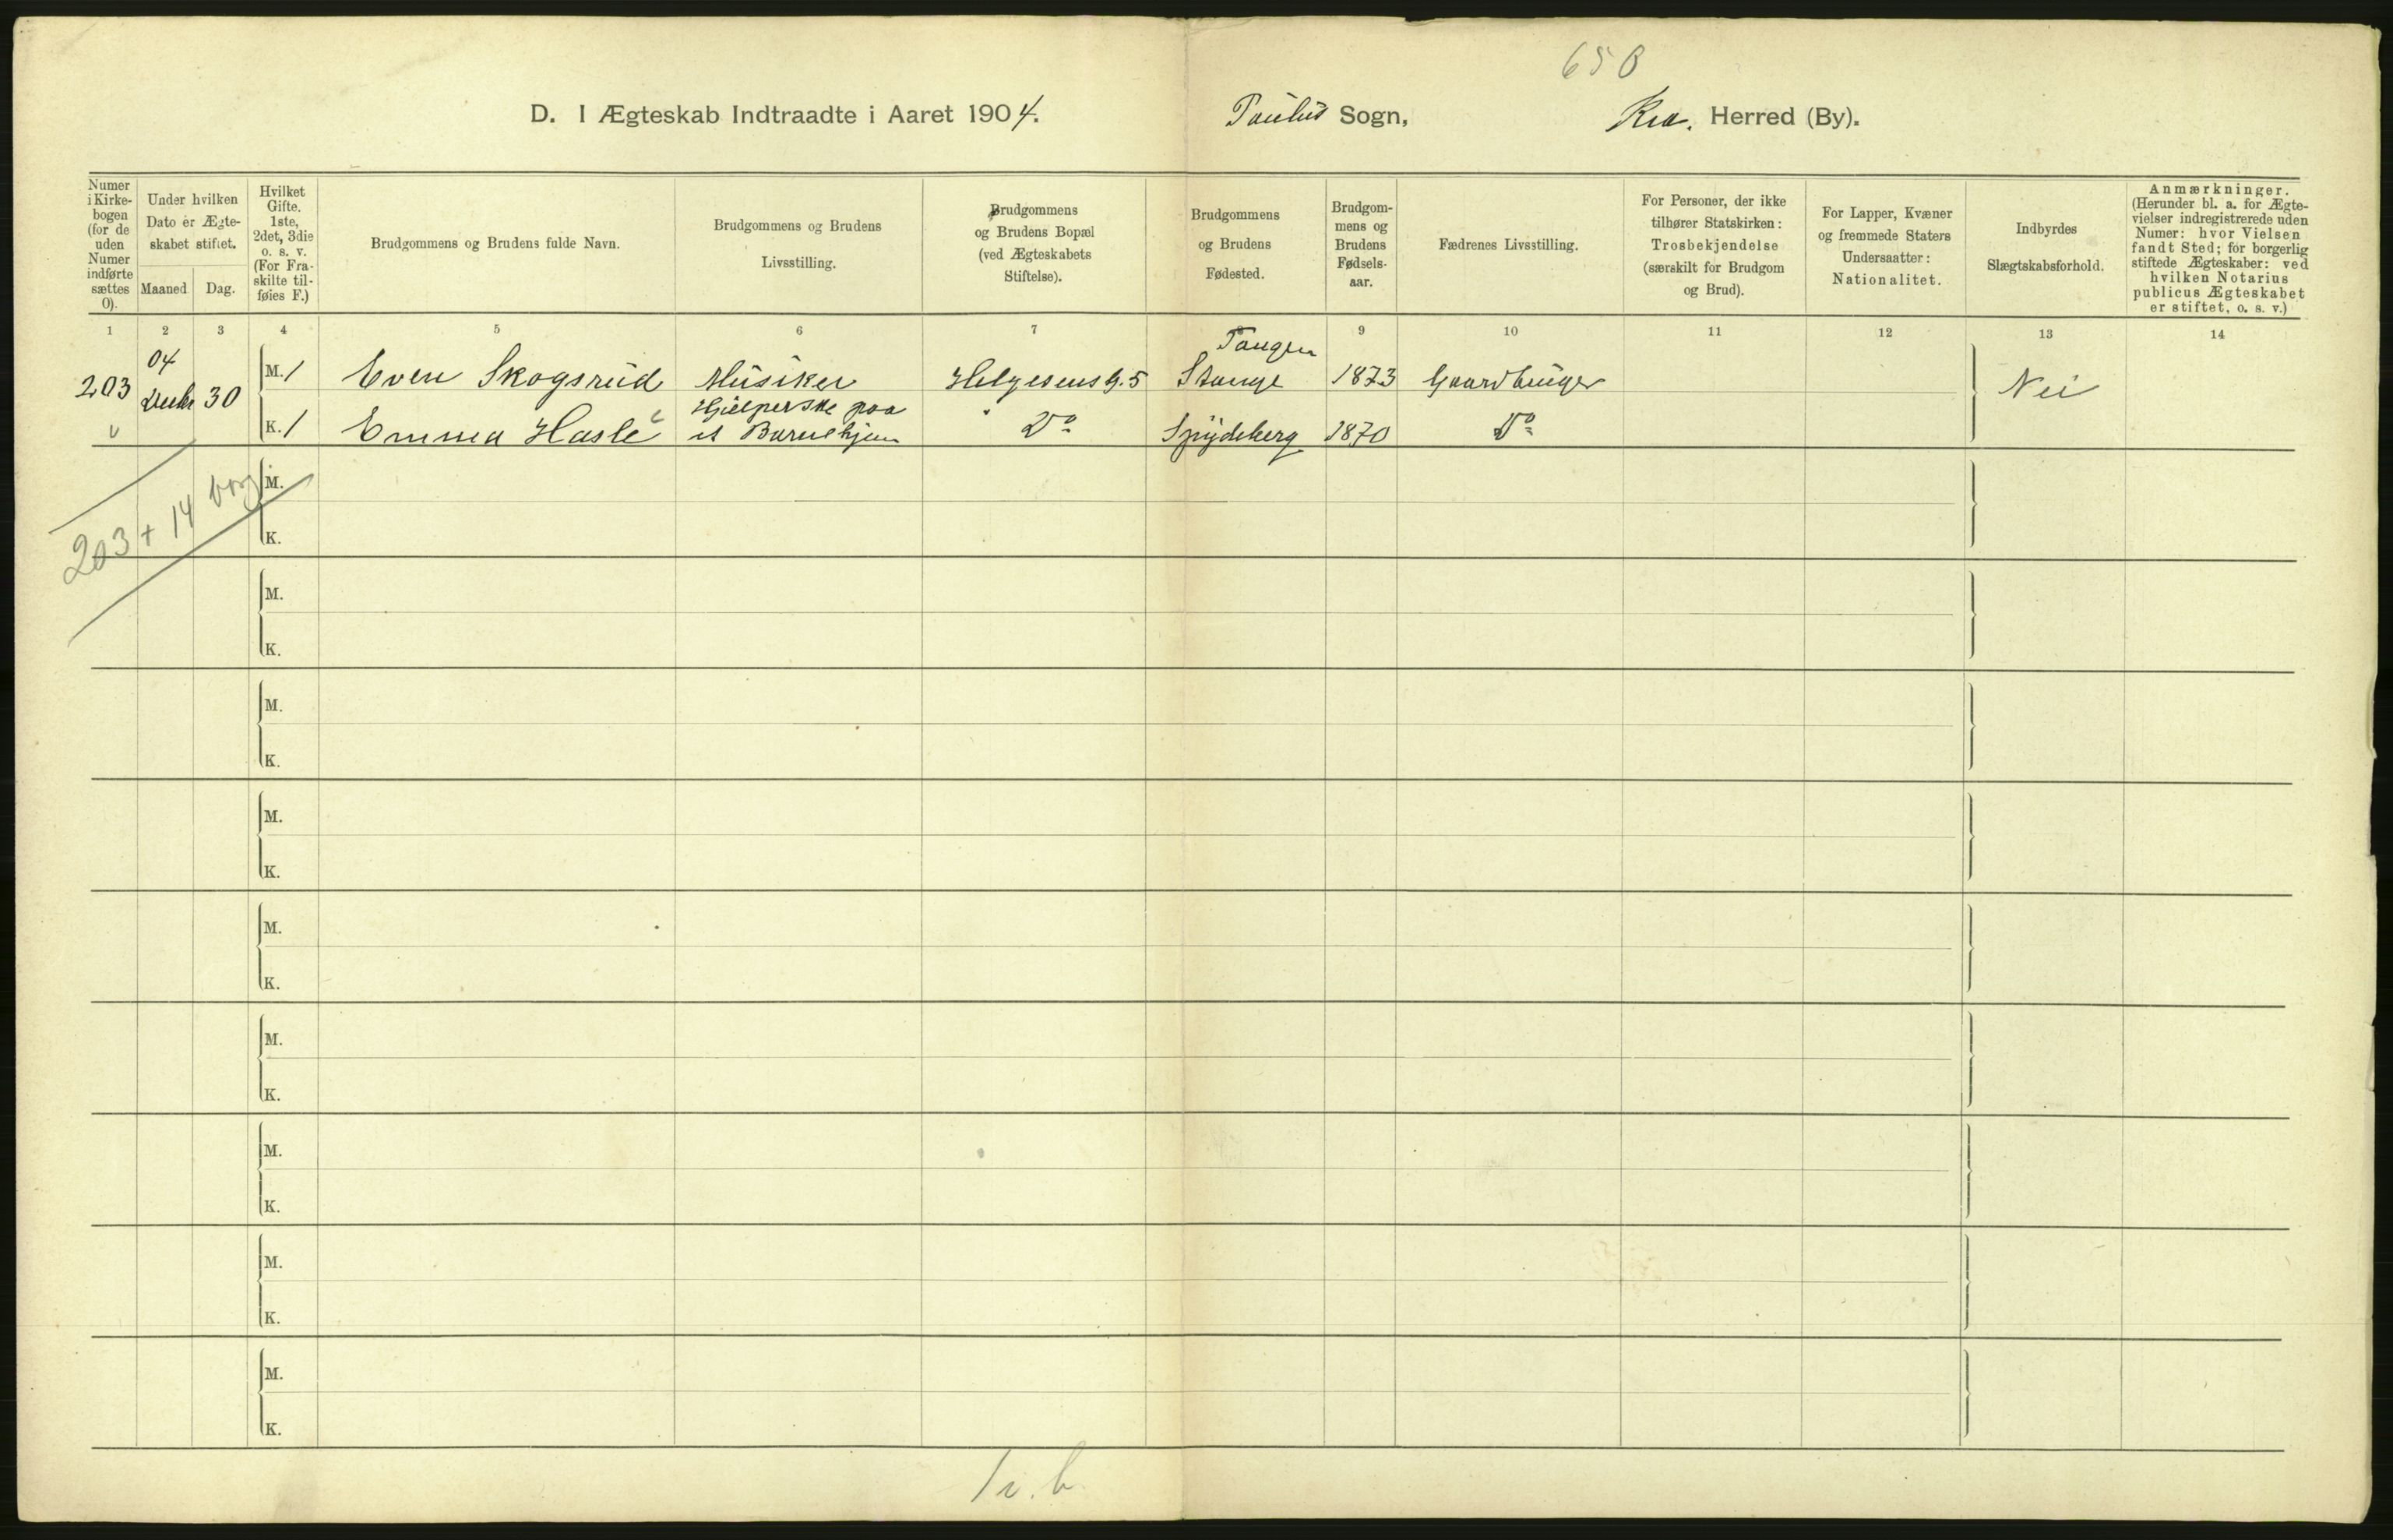 650
D. I Ægteskab Indtraadte i Aaret 1904. Paulus Sogn, Kra. Herred (By).
Numer i Kirkebogen (for de uden Numer indførte sættes 0).
Under hvilken Dato er Ægteskabet stiftet.
Maaned
Dag.
Hvilket Gifte. 1ste, 2det, 3die o. s. v. (For Fraskilte tilføies F.)
Brudgommens og Brudens fulde Navn.
Brudgommens og Brudens Livsstilling.
Brudgommens og Brudens Bopæl (ved Ægteskabets Stiftelse).
Brudgommens og Brudens Fødested.
Brudgommens og Brudens Fødselsaar.
Fædrenes Livsstilling.
For Personer, der ikke tilhører Statskirken: Trosbekjendelse (særskilt for Brudgom og Brud).
For Lapper, Kvæner og fremmede Staters Undersaatter: Nationalitet.
Indbyrdes Slægtskabsforhold.
Anmærkninger. (Herunder bl. a. for Ægtevielser indregistrerede uden Numer: hvor Vielsen fandt Sted; for borgerlig stiftede Ægteskaber: ved hvilken Notarius publicus Ægteskabet er stiftet, o. s. v.)
1 2 3 4 5 6 7 8 9 10 11 12 13 14
04 Tangen
203 Decbr 30 M. 1 Even Skogsrud Musiker Helgesens G. 5 Stange 1873 Gaardbruger Nei
Hjælperske paa
K. 1 Emma Hasle et Barnehjem Do Spydeberg 1870 Do
203 + 14 borg
M.
K.
M.
K.
M.
K.
M.
K.
M.
K.
M.
K.
M.
K.
M.
K.
M.
K.